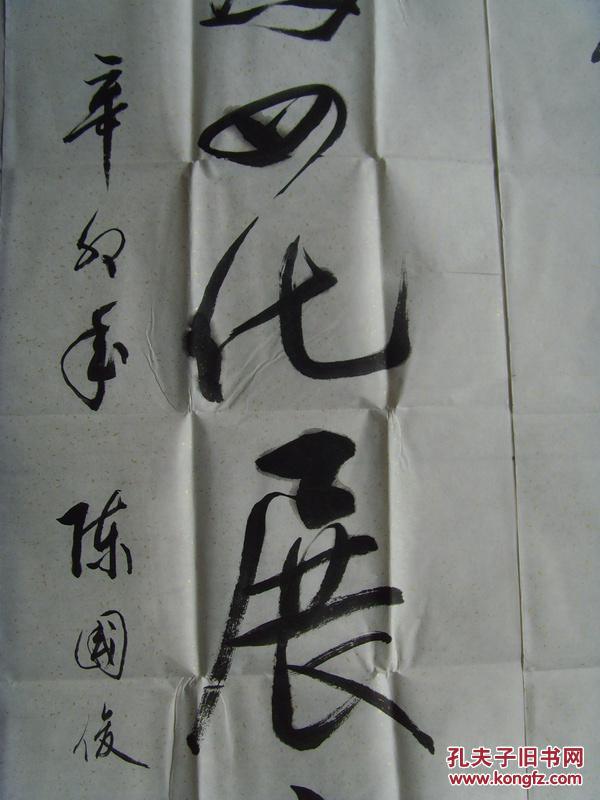 四化展
辛卯年 陈國俊
孔夫子旧书网
www.kongfz.com